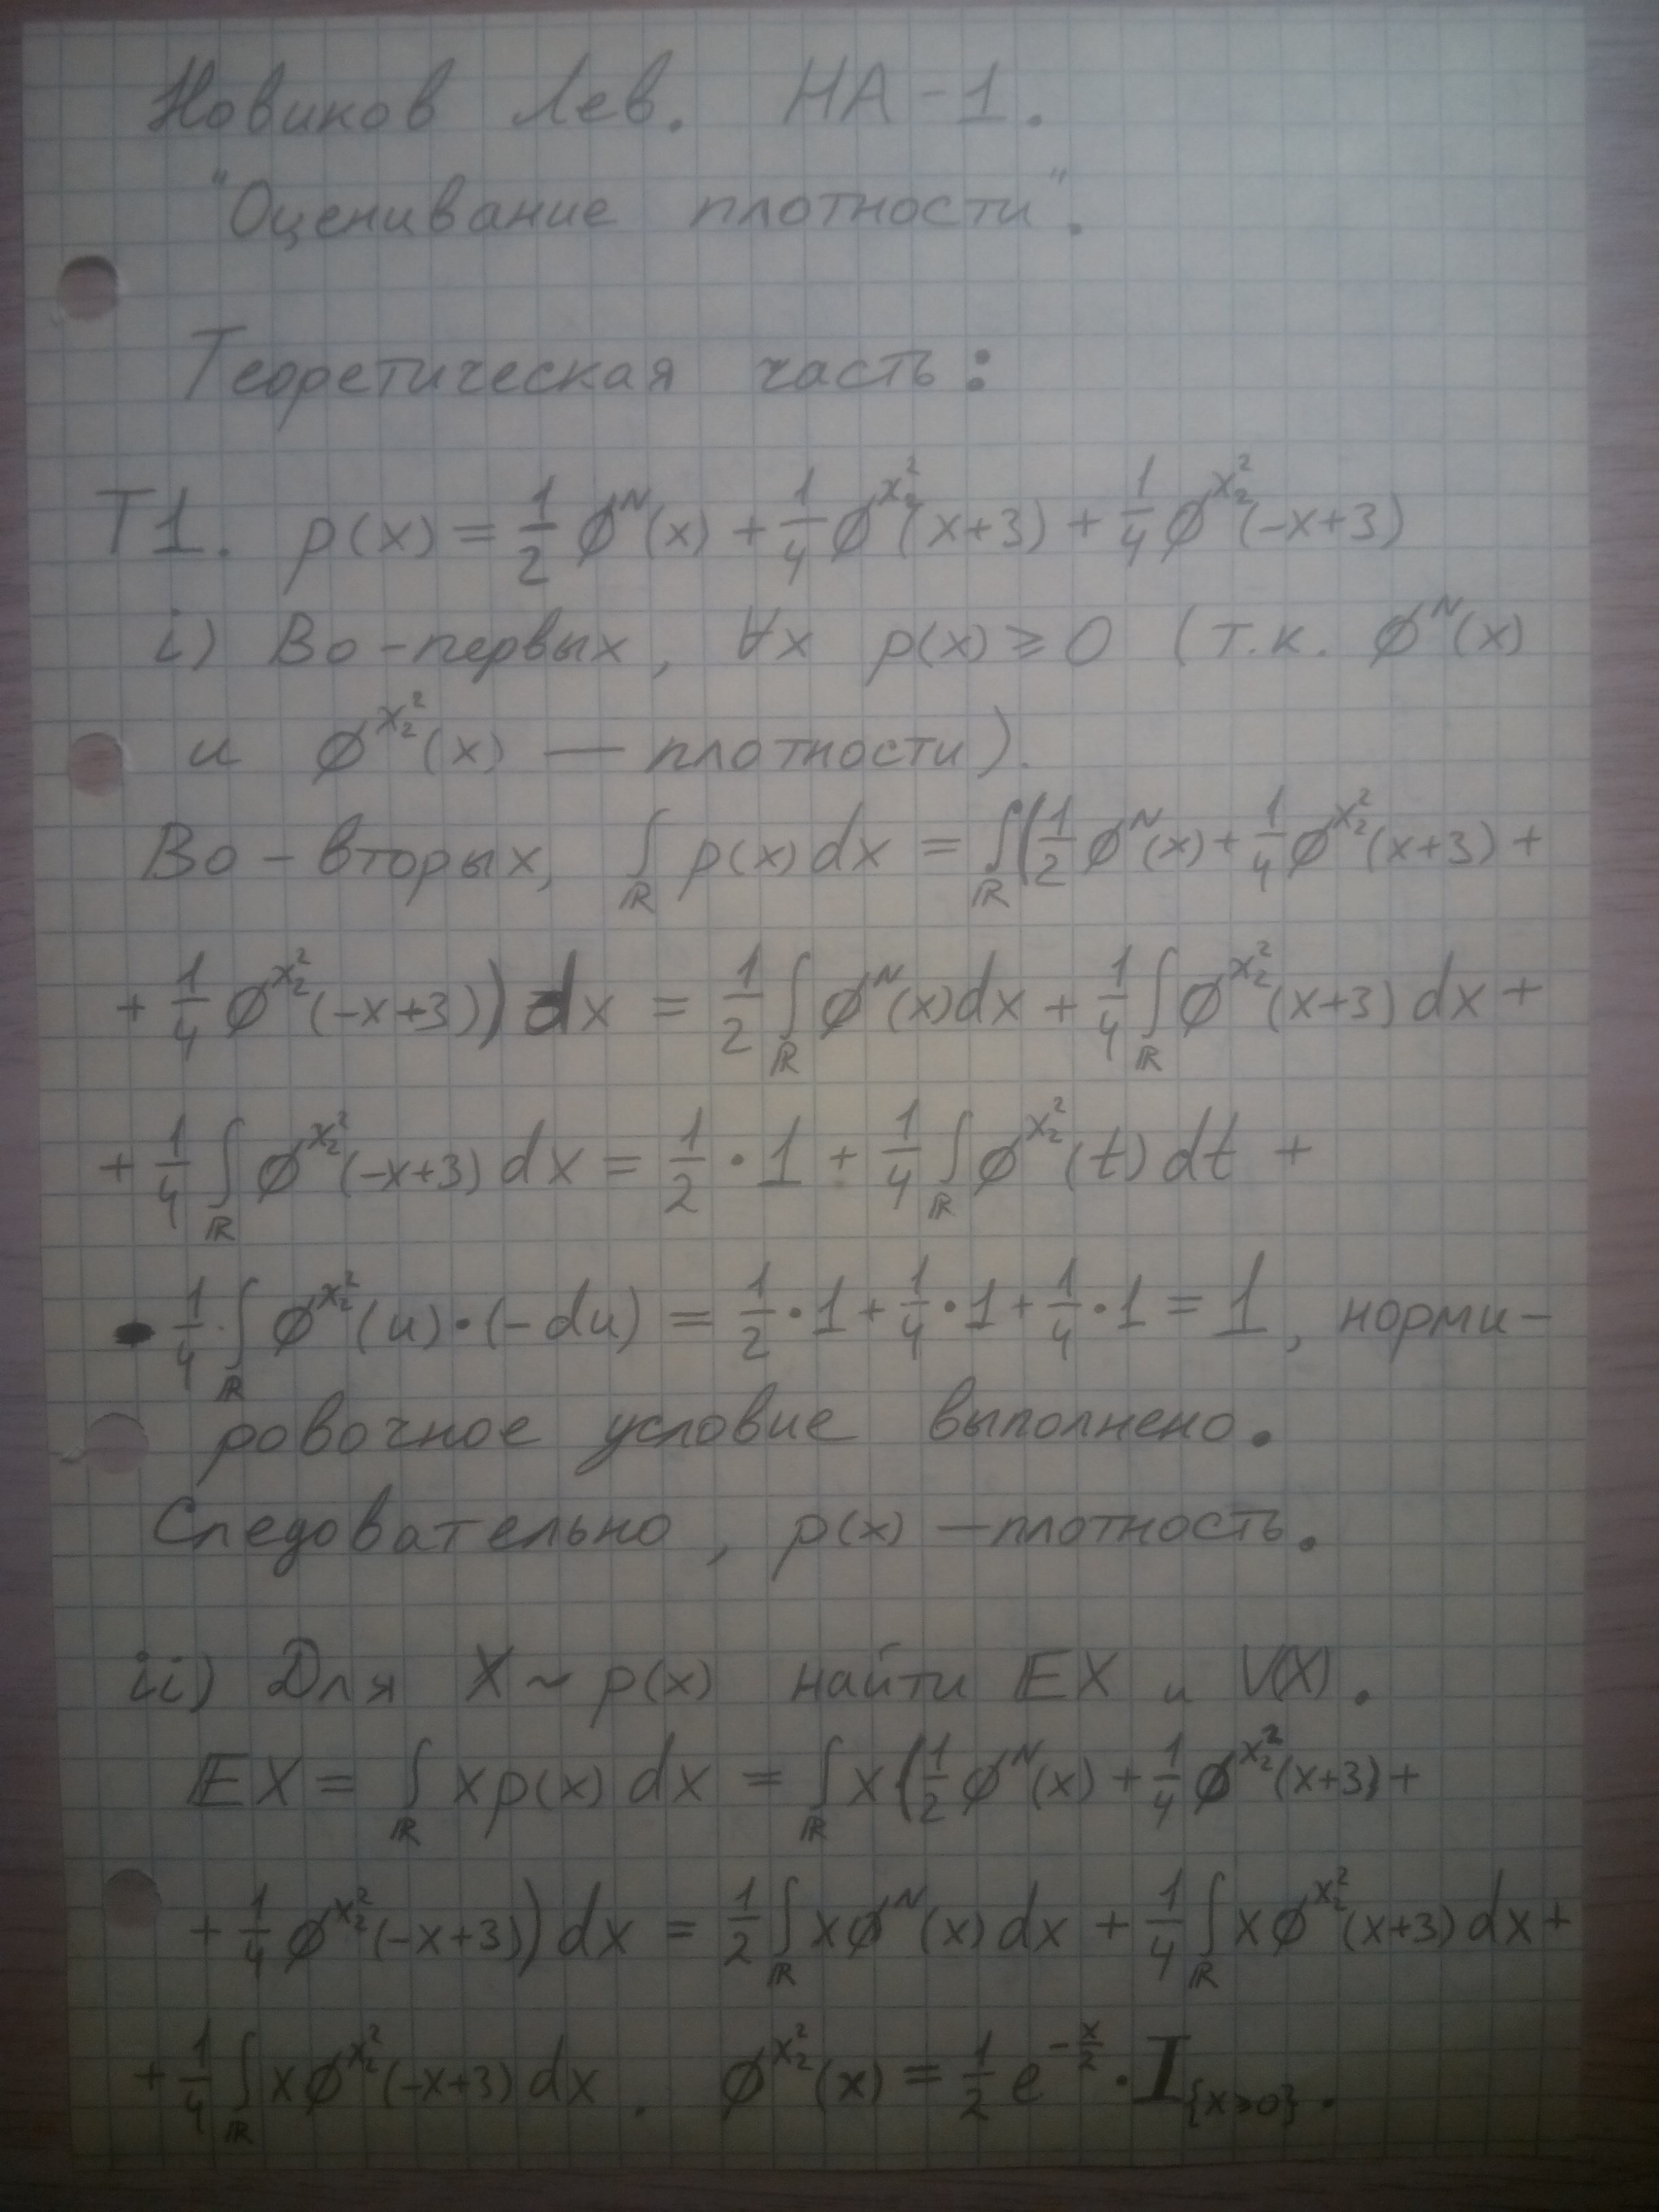 Новиков Лев. НА-1.
"Оценивание плотности".
Теоретическая часть:
T1. p(x) = 1/2 ϕ^N(x) + 1/4 ϕ^{χ_2^2}(x+3) + 1/4 ϕ^{χ_2^2}(-x+3)
i) Во-первых, ∀x p(x) ≥ 0 (т.к. ϕ^N(x)
и ϕ^{χ_2^2}(x) — плотности).
Во-вторых, ∫_ℝ p(x) dx = ∫_ℝ (1/2 ϕ^N(x) + 1/4 ϕ^{χ_2^2}(x+3) +
+ 1/4 ϕ^{χ_2^2}(-x+3)) dx = 1/2 ∫_ℝ ϕ^N(x) dx + 1/4 ∫_ℝ ϕ^{χ_2^2}(x+3) dx +
+ 1/4 ∫_ℝ ϕ^{χ_2^2}(-x+3) dx = 1/2 · 1 + 1/4 ∫_ℝ ϕ^{χ_2^2}(t) dt +
1/4 · ∫_ℝ ϕ^{χ_2^2}(u) · (-du) = 1/2 · 1 + 1/4 · 1 + 1/4 · 1 = 1, норми-
ровочное условие выполнено.
Следовательно, p(x) — плотность.
ii) Для X ~ p(x) найти 𝔼X и V(X).
𝔼X = ∫_ℝ x p(x) dx = ∫_ℝ x (1/2 ϕ^N(x) + 1/4 ϕ^{χ_2^2}(x+3) +
+ 1/4 ϕ^{χ_2^2}(-x+3)) dx = 1/2 ∫_ℝ x ϕ^N(x) dx + 1/4 ∫_ℝ x ϕ^{χ_2^2}(x+3) dx +
+ 1/4 ∫_ℝ x ϕ^{χ_2^2}(-x+3) dx. ϕ^{χ_2^2}(x) = 1/2 e^{-x/2} · I_{x≥0}.